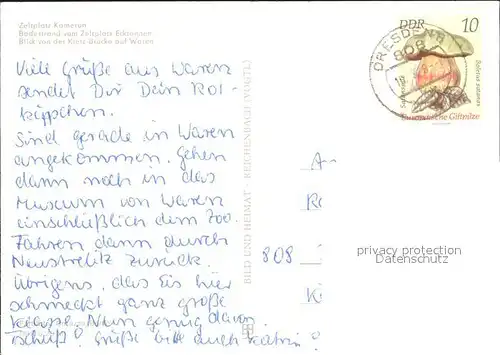 Zeltplatz Kamerun
Badestrand vom Zeltplatz Ecktannen
Blick von der Kietz-Brücke auf Waren
Viele Grüße aus Waren
sendet Dir Dein Rot-
käppchen.
Sind gerade in Waren
angekommen. Gehen
dann noch in das
Museum von Waren
einschließlich dem Zoo.
Fahren dann durch
Neustrelitz zurück.
Übrigens, das Eis hier
schmeckt ganz große
Klasse. Nun genug davon,
Tschüß! Grüße bitte auch Katrin!
BILD UND HEIMAT · REICHENBACH (VOGTL)
DDR 10
DRESDEN
808
Boletus satanas
Europäische Giftpilze
A
R
808
K
privacy protection
Datenschutz